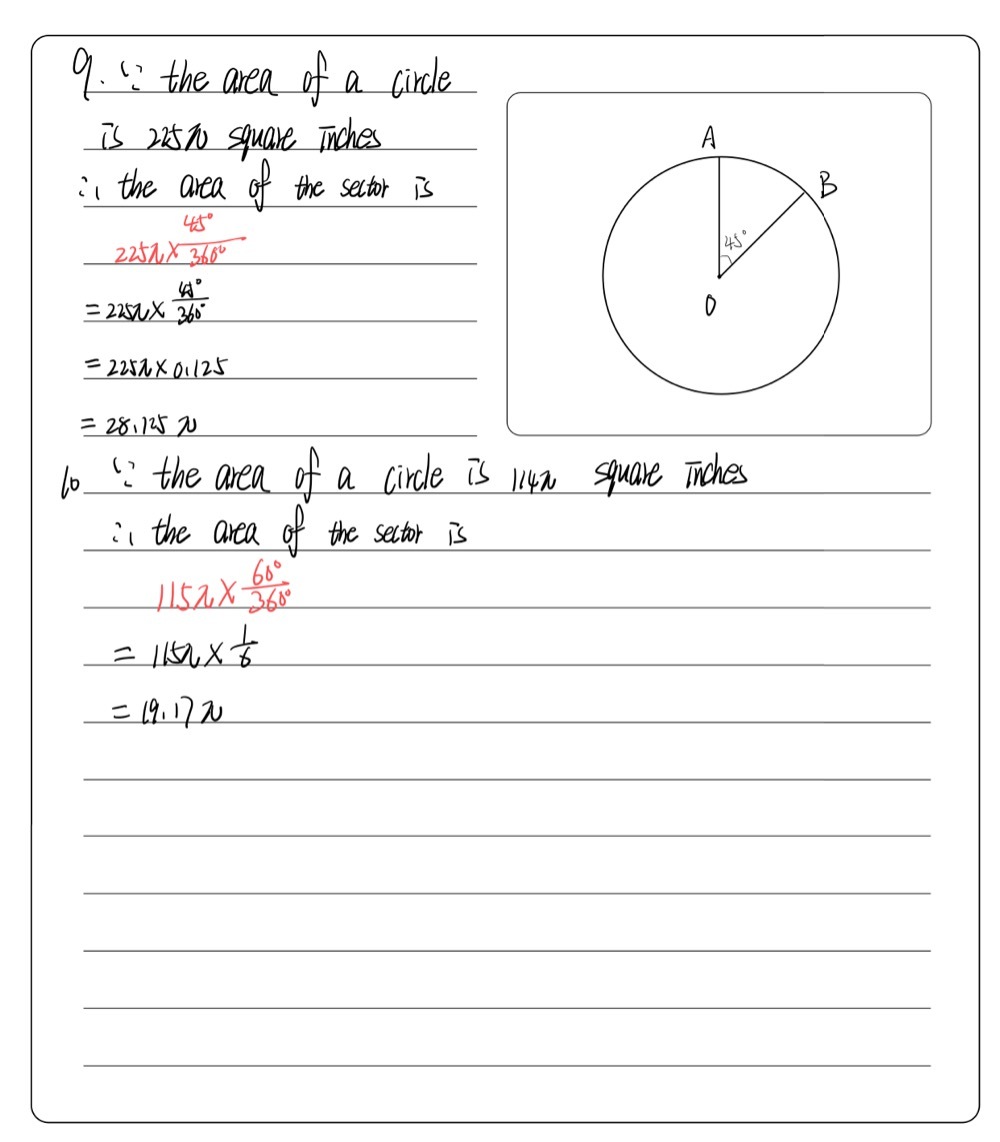 9. ∵ the area of a circle
is 225π square inches
∴ the area of the sector is
225π × 45°/360°
= 225π × 45°/360°
= 225π × 0.125
= 28.125 π
A
B
45°
O
10 ∵ the area of a circle is 114π square inches
∴ the area of the sector is
115π × 60°/360°
= 115π × 1/6
= 19.17 π